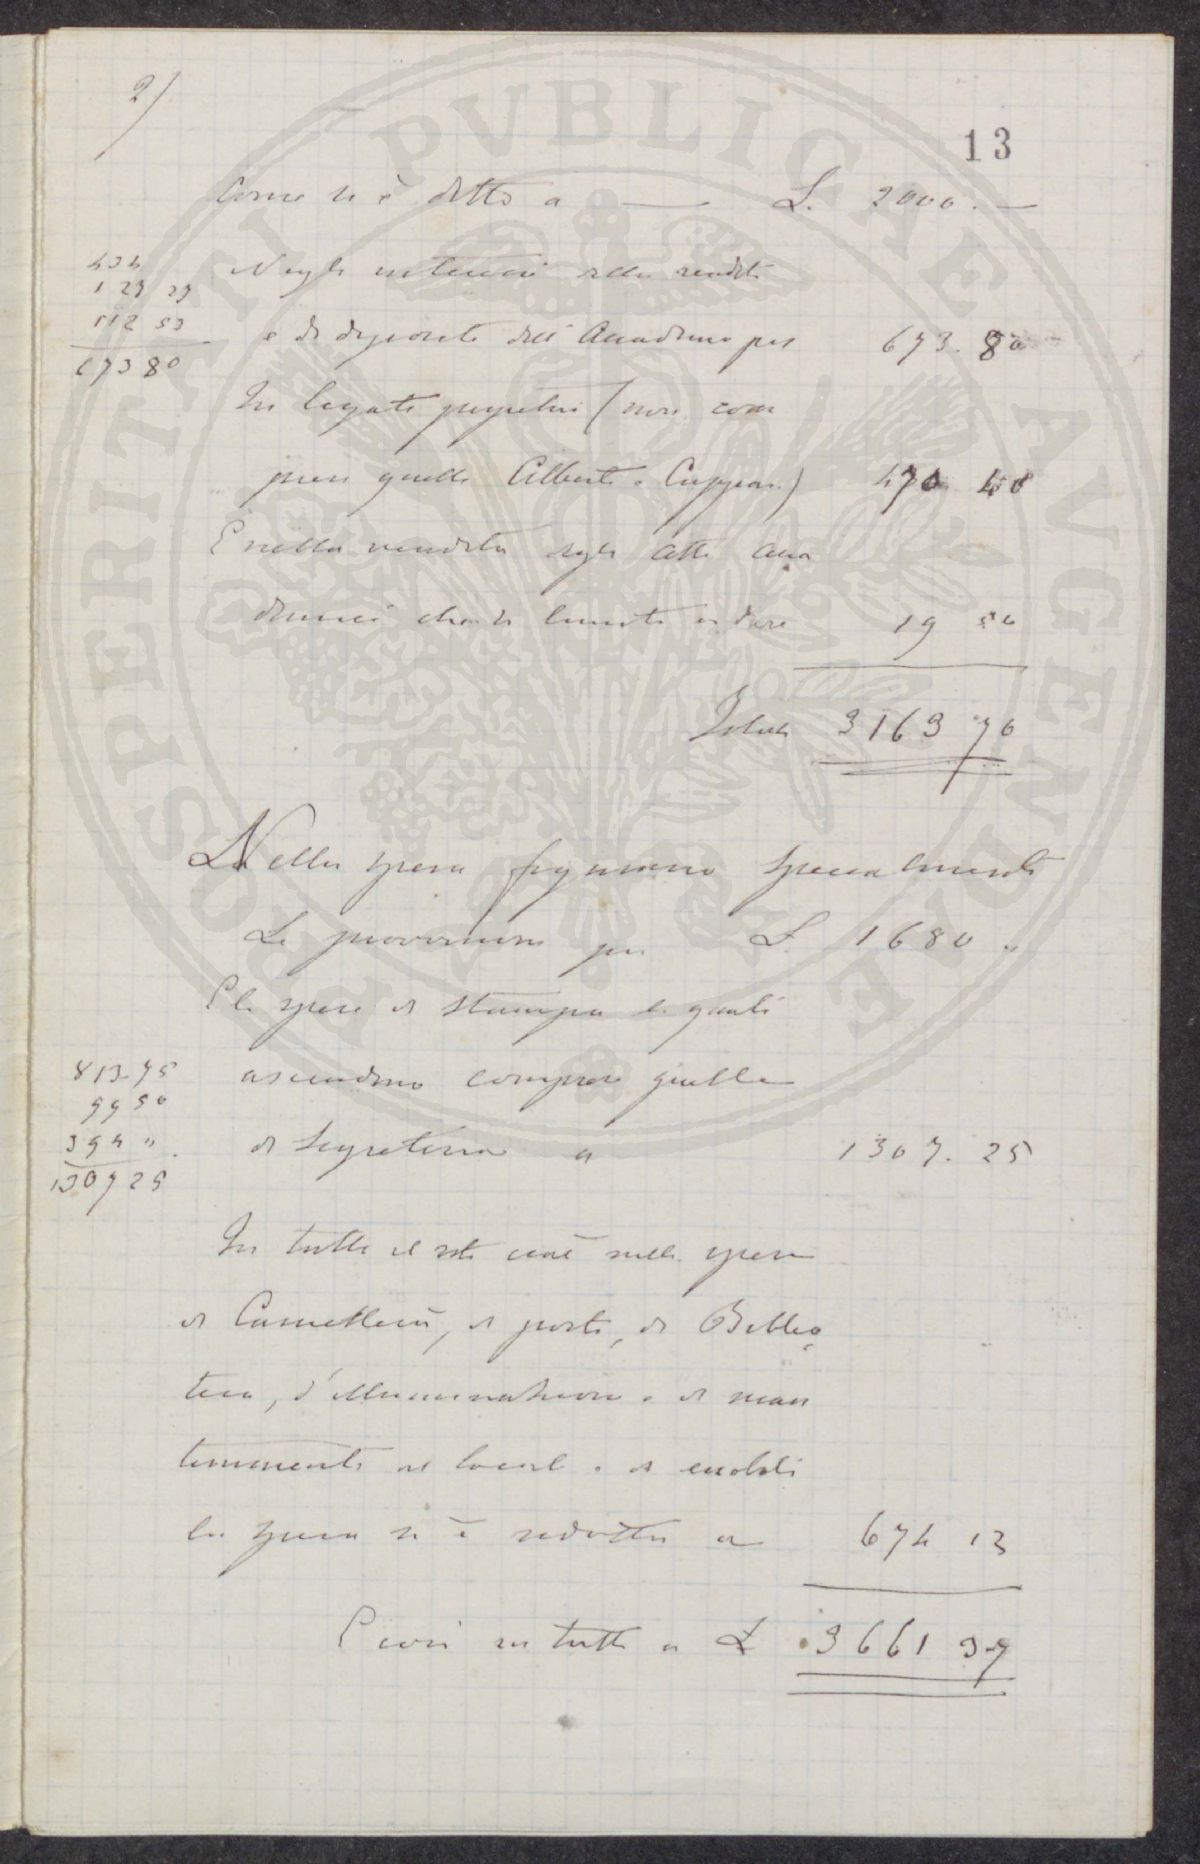 2/
13
Come si è detto a — L. 2000. —
434
129 27
112 53
673 80
Negli interessi della rendita
e di deposito dell'Accademia per 673. 80
In legati perpetui (non com
presi quelli Alberti e Cuppari) 470 40
E nella vendita degli Atti Acca
demici che si limitò a dare 19 50
Totale 3163 70
Nelle spese figurano specialmente
Le provvisioni per L. 1680 "
E le spese di stampa le quali
813.75
99 50
394 "
1307 25
ascendono comprese quelle
di Segreteria a 1307. 25
In tutto il resto cioè nelle spese
di Cancelleria, di posta, di Biblio
teca, d'illuminazione e di man
tenimento di locali e di mobili
la spesa si è ridotta a 674 12
E così in tutto a L 3661 37